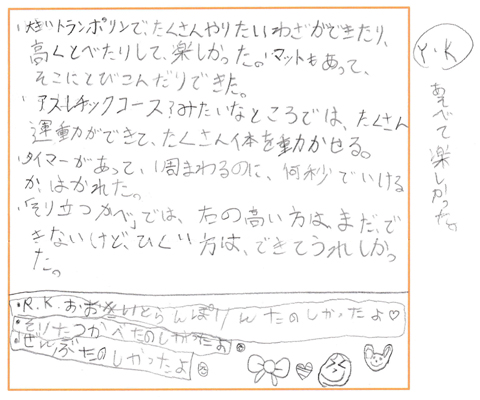 ・大きいトランポリンで、たくさんやりたいわざができたり、
高くとべたりして、楽しかった。・マットもあって、
そこにとびこんだりできた。
・アスレチックコースみたいなところでは、たくさん
運動ができて、たくさん体を動かせる。
・タイマーがあって、1周まわるのに、何秒でいける
か、はかれた。
・「そり立つかべ」では、右の高い方は、まだ、で
きないけど、ひくい方は、できてうれしかっ
た。
・R.K.おおきいとらんぽりんたのしかったよ♡
・そりたつかべたのしかったよ
・ぜんぶたのしかったよ
Y・K
あそべて楽しかった。